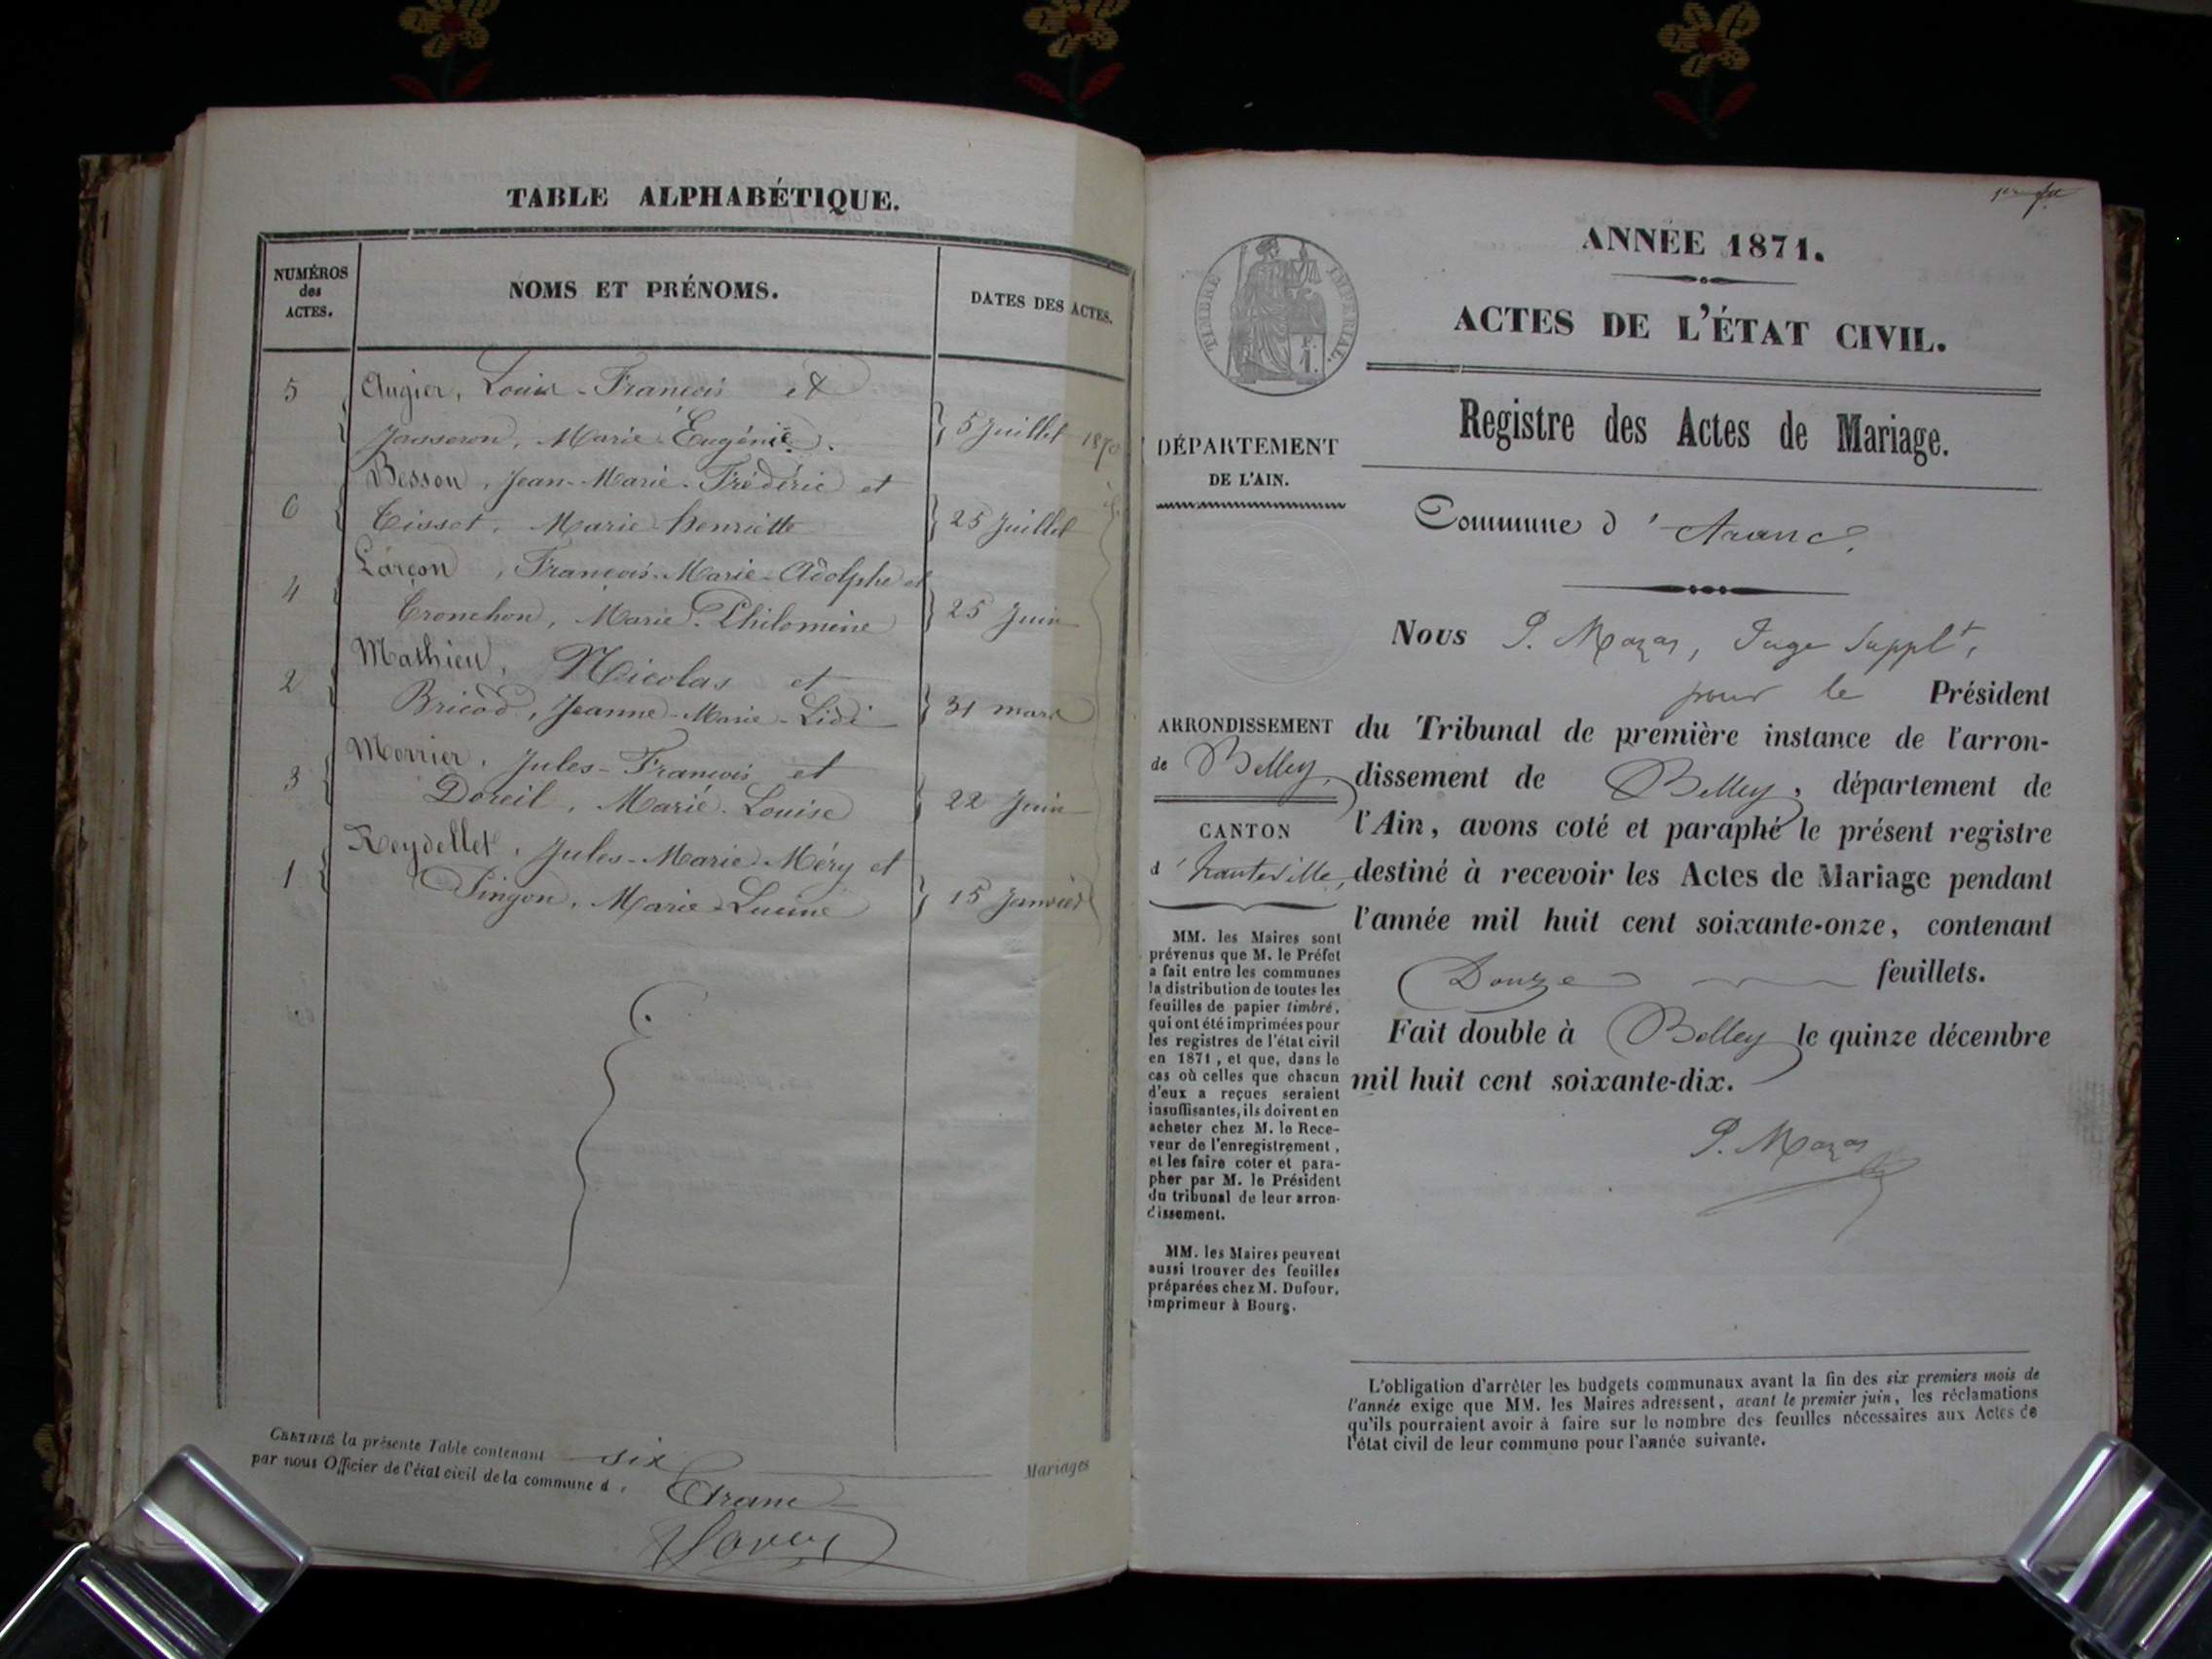 TABLE ALPHABÉTIQUE.
NUMÉROS
des
ACTES.
NOMS ET PRÉNOMS.
DATES DES ACTES.
5 Augier, Louis-François et
Jasseron, Marie-Eugénie. 5 Juillet 1870
Besson, Jean-Marie-Frédéric et
6 Tissot, Marie henriette 25 Juillet
Larçon, François-Marie-Adolphe et
4 Tronchon, Marie-Philomène 25 Juin
Mathieu, Nicolas et
2 Bricod, Jeanne-Marie-Lidi 31 mars
Morrier, Jules-François et
3 Doreil, Marie-Louise 22 Juin
Reydellet, Jules-Marie-Méry et
1 Singon, Marie 15 Janvier
CERTIFIÉ la présente Table contenant six Mariages
par nous Officier de l'état civil de la commune d' Aranc
TIMBRE IMPÉRIAL.
1er
ANNÉE 1871.
ACTES DE L'ÉTAT CIVIL.
Registre des Actes de Mariage.
DÉPARTEMENT
DE L'AIN.
Commune d'Aranc.
Nous P. Mazas, Juge Supplt,
pour le Président
ARRONDISSEMENT
de Belley,
CANTON
d'hauteville,
du Tribunal de première instance de l'arron-
dissement de Belley, département de
l'Ain, avons coté et paraphé le présent registre
destiné à recevoir les Actes de Mariage pendant
l'année mil huit cent soixante-onze, contenant
Douze feuillets.
Fait double à Belley le quinze décembre
mil huit cent soixante-dix.
P. Mazas
MM. les Maires sont
prévenus que M. le Préfet
a fait entre les communes
la distribution de toutes les
feuilles de papier timbré,
qui ont été imprimées pour
les registres de l'état civil
en 1871, et que, dans le
cas où celles que chacun
d'eux a reçues seraient
insuffisantes, ils doivent en
acheter chez M. le Rece-
veur de l'enregistrement,
et les faire coter et para-
pher par M. le Président
du tribunal de leur arron-
dissement.
MM. les Maires peuvent
aussi trouver des feuilles
préparées chez M. Dufour,
imprimeur à Bourg.
L'obligation d'arrêter les budgets communaux avant la fin des six premiers mois de
l'année exige que MM. les Maires adressent, avant le premier juin, les réclamations
qu'ils pourraient avoir à faire sur le nombre des feuilles nécessaires aux Actes de
l'état civil de leur commune pour l'année suivante.